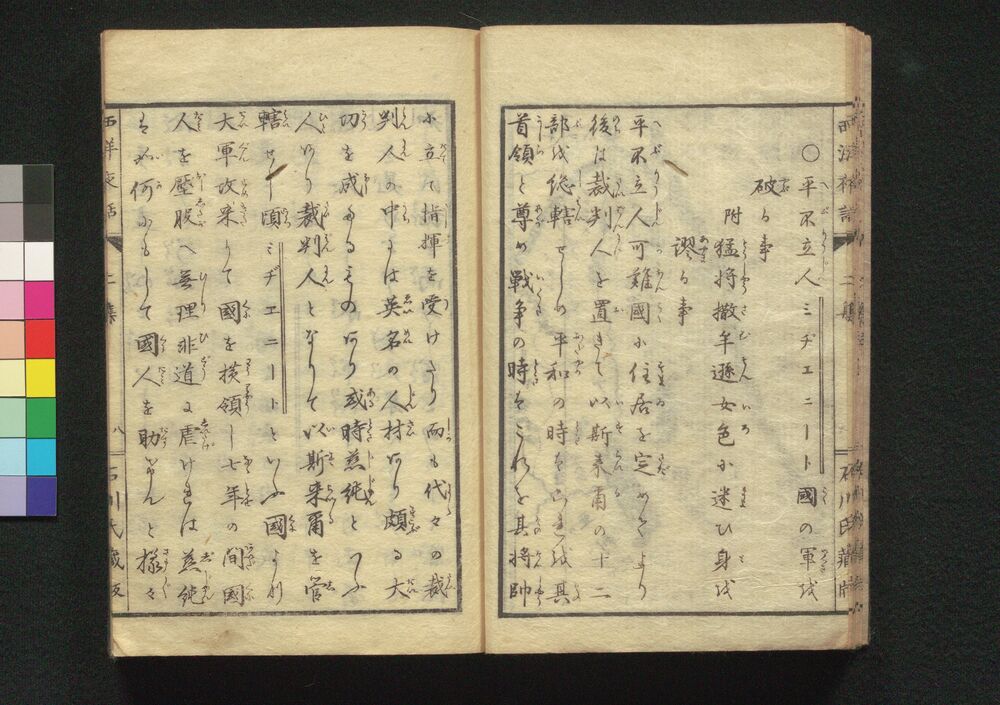 ○平不立人ミヂエニート國の軍を
破る事
附猛将撒牟遜女色に迷ひ身を
謬る事
平不立人可難國に住居を定めてより
後は裁判人を置きて以斯来爾の十二
部を総轄せしめ平和の時は是を其
首領と尊め戦争の時はこれを其将帥
に立て指揮を受けたり而も代々の裁
判人の中には英名の人材あり頗る大
功を成たるものあり或時慈純といふ
人あり裁判人となりて以斯来爾を管
轄せし頃ミヂエニートといふ國より
大軍攻来りて國を横領し七年の間國
人を壓服へ無理非道に虐けれは慈純
は如何にもして國人を助けんと様々
西洋夜話
二集
八
石川氏蔵版